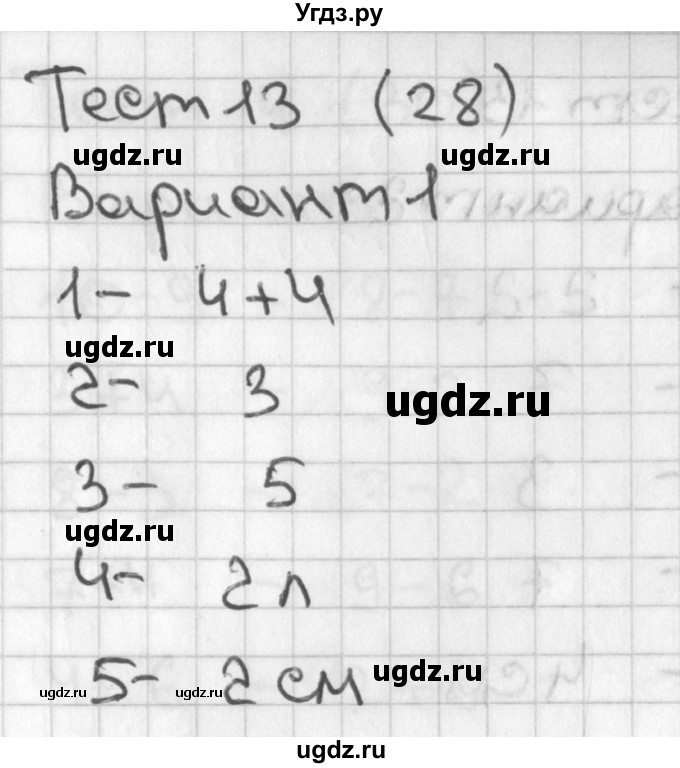 Угдз.ру
Тест 13 (28)
ugdz.ru ugdz.ru
Вариант 1
1- 4+4
ugdz.ru
2- 3 ugdz.ru
3- 5
ugdz.ru
4- 2 л
5- 2 см ugdz.ru
ugdz.ru ugdz.ru
ugdz.ru